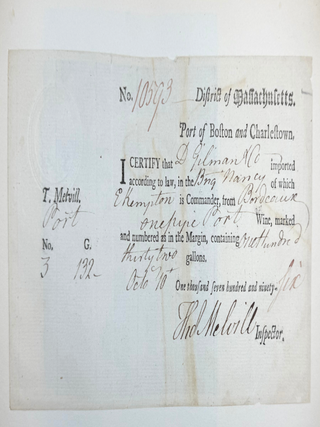 No. 10593 District of Massachusetts.
Port of Boston and Charlestown.
I CERTIFY that D Gilman & Co imported
according to law, in the Brig Nancy of which
E Kempton is Commander, from Bordeaux
one pipe Port Wine, marked
and numbered as in the Margin, containing one hundred
thirty two gallons.
Octo 10th One thousand seven hundred and ninety-six
Tho.s Melvill Inspector.
T. Melvill.
Port
No. G.
3 132-